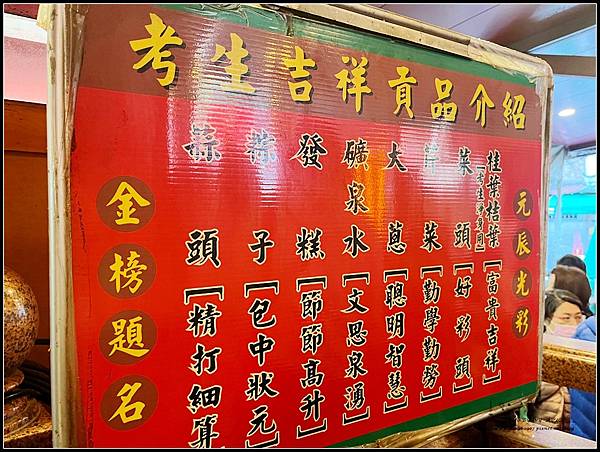 考生吉祥貢品介紹
元辰光彩
桂葉桔葉(考生淨身用)[富貴吉祥]
菜頭[好彩頭]
芹菜[勤學勤勞]
大蔥[聰明智慧]
礦泉水[文思泉湧]
發糕[節節高升]
粽子[包中狀元]
蒜頭[精打細算
金榜題名